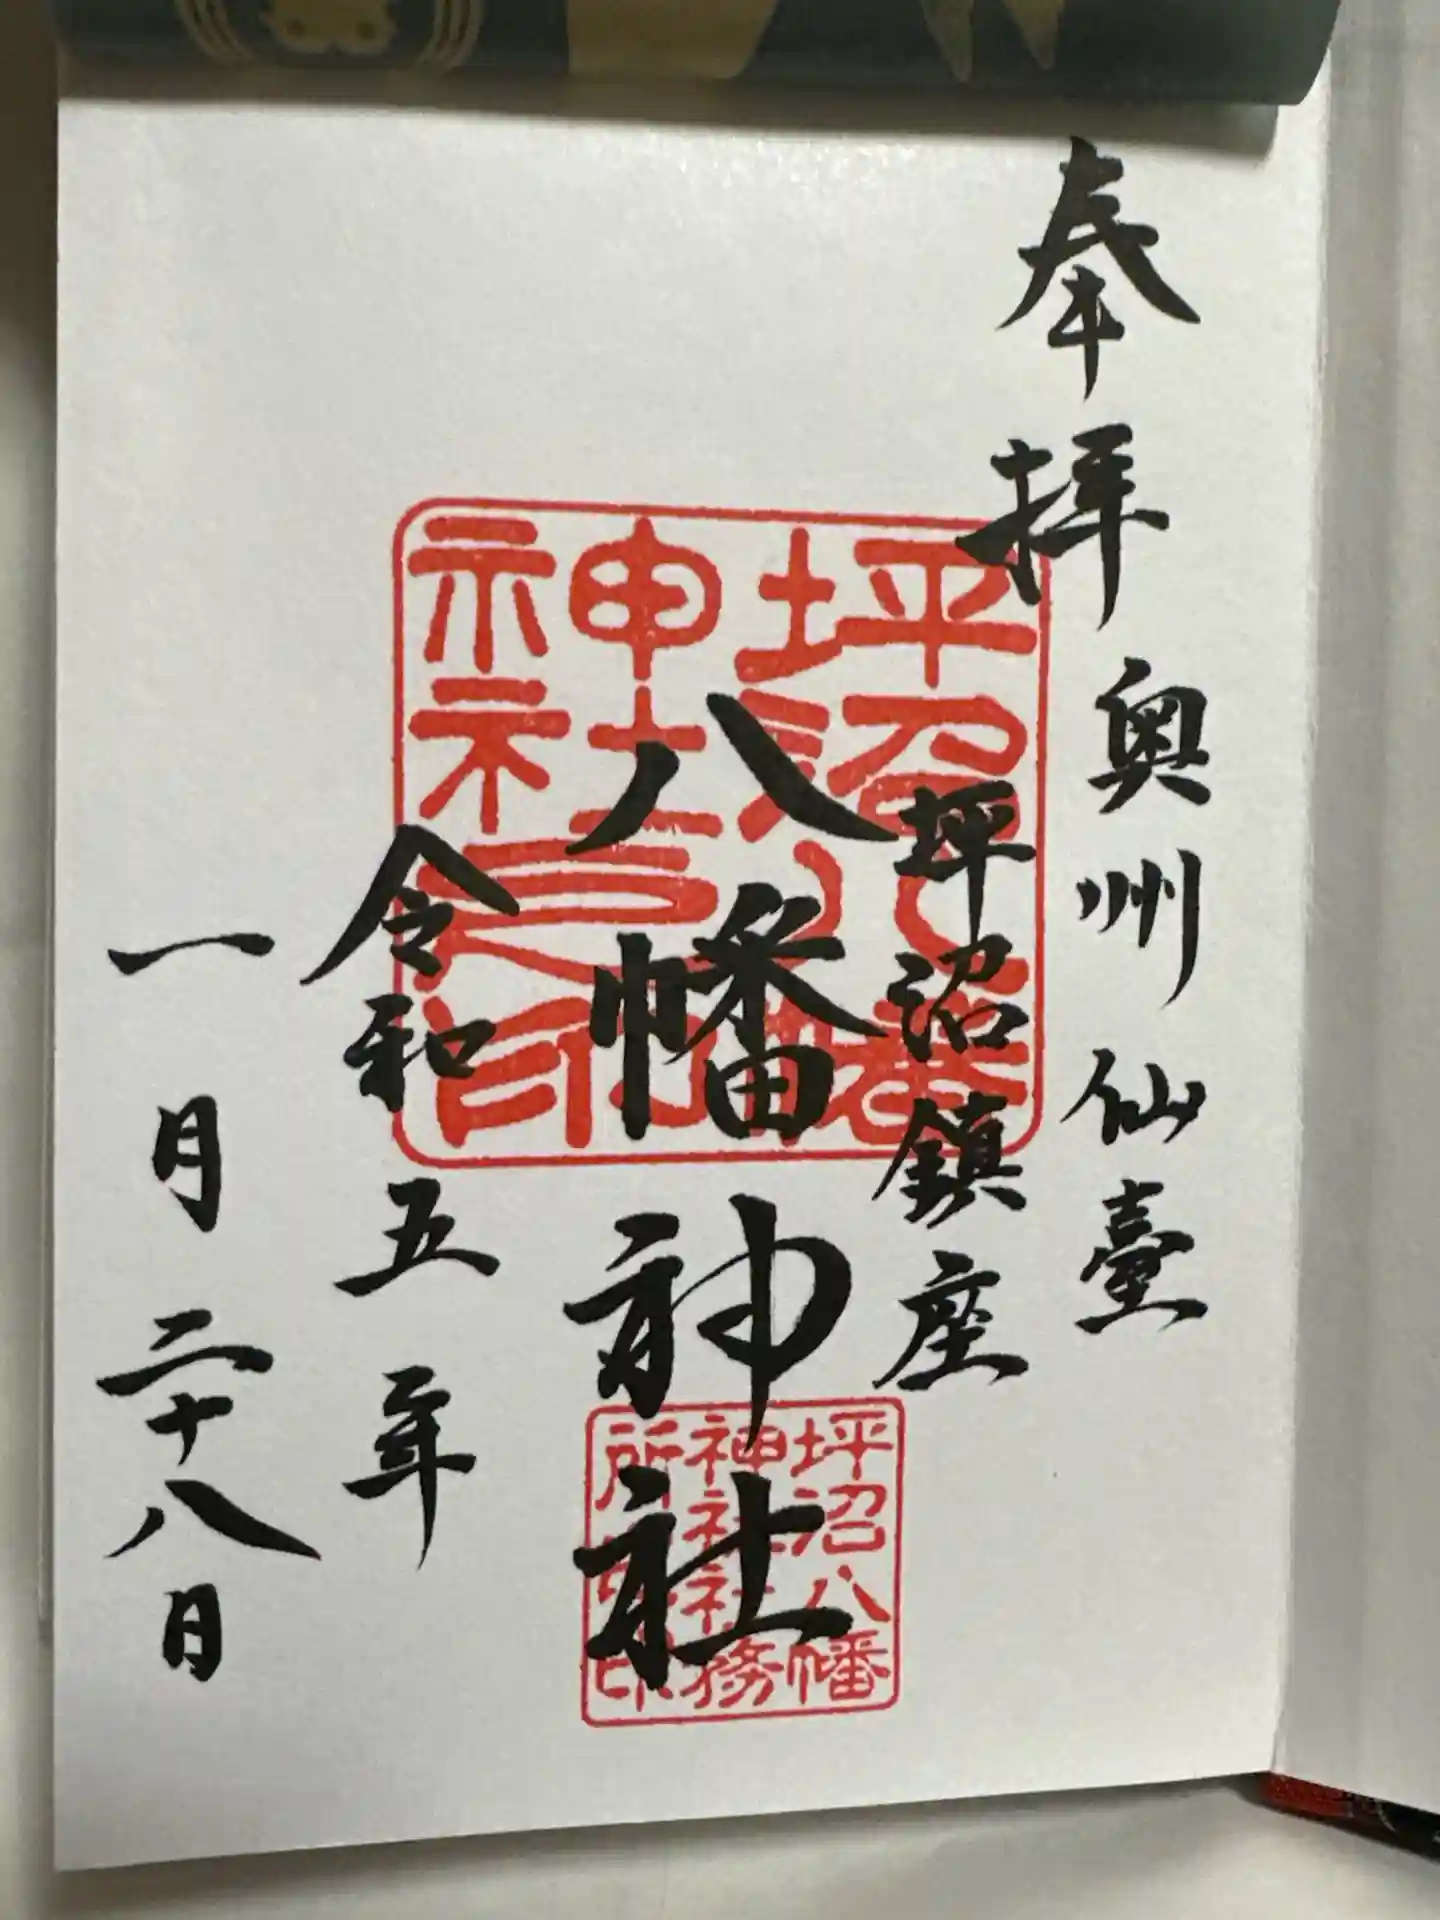 奉拝
奥州仙臺
坪沼鎮座
八幡神社
令和五年
一月二十八日
坪沼八幡
神社社務
所
印